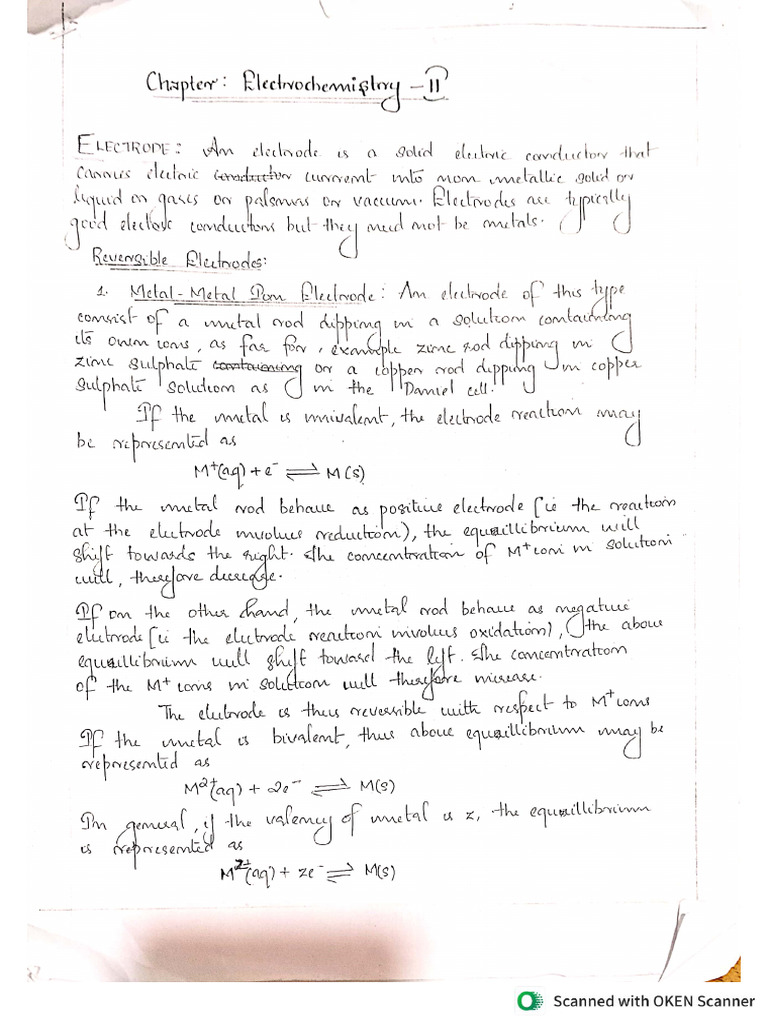 Chapter: Electrochemistry - II
ELECTRODE: An electrode is a solid electric conductor that
carries electric conductor current into non metallic solid or
liquid or gases or palsmas or vacuum. Electrodes are typically
good electric conductors but they need not be metals.
Reversible Electrodes:
1. Metal-Metal Ion Electrode: An electrode of this type
consist of a metal rod dipping in a solution containing
its own ions, as far for, example zinc rod dipping in
zinc sulphate containing or a copper rod dipping in copper
sulphate solution as in the Daniel cell.
If the metal is univalent, the electrode reaction may
be represented as
M⁺(aq) + e⁻ ⇌ M(s)
If the metal rod behave as positive electrode (ie the reaction
at the electrode involves reduction), the equillibrium will
shift towards the right. The concentration of M⁺ ion in solution
will, therefore decrease.
If on the other hand, the metal rod behave as negative
electrode (ie the electrode reaction involves oxidation), the above
equillibrium will shift toward the left. The concentration
of the M⁺ ions in solution will therefore increase.
The electrode is thus reversible with respect to M⁺ ions
If the metal is bivalent, thus above equillibrium may be
represented as
M²⁺(aq) + 2e⁻ ⇌ M(s)
In general, if the valency of metal is z, the equillibrium
is represented as
Mᶻ⁺(aq) + ze⁻ ⇌ M(s)
Scanned with OKEN Scanner